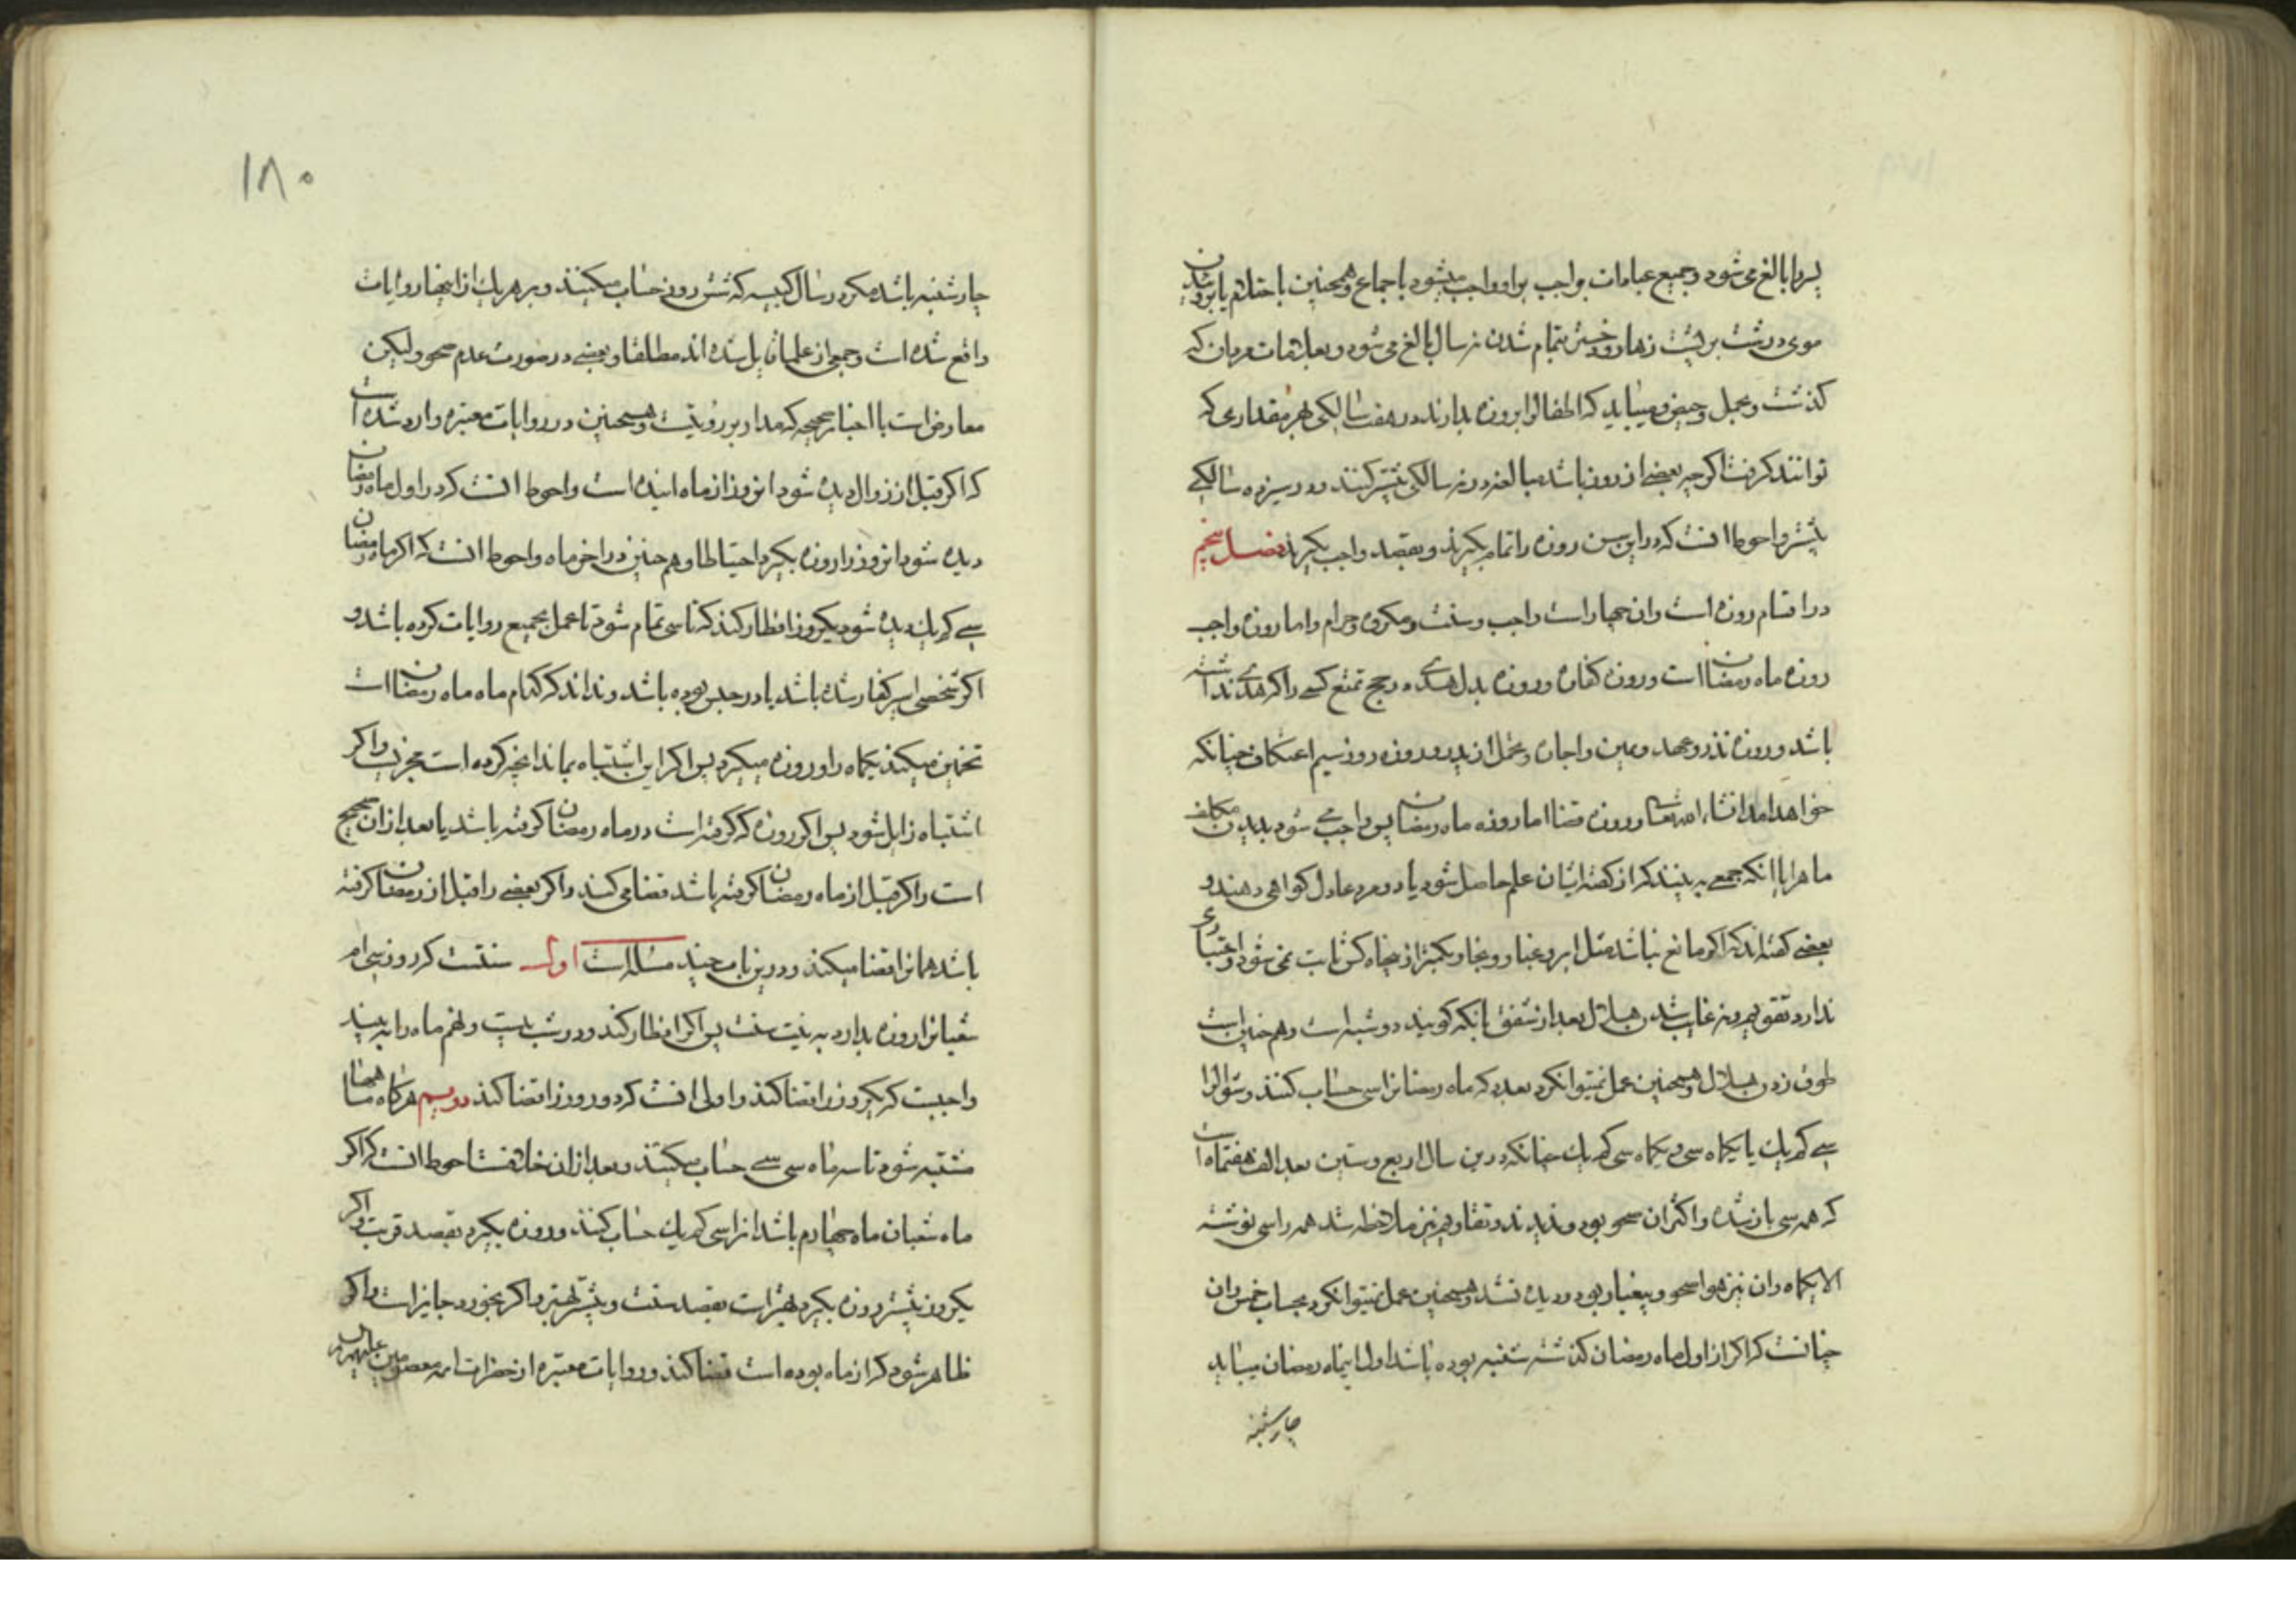 پسرا بالغ می شود و جمیع عبادات واجب براو واجب میشود باجماع و همچنین باحتلام یا بروییدن
موی درشت بر پشت زهار و دختر بتمام شدن نه سال بالغ می شود و بعلامات مردان که
کذشت و بحمل و حیض و میباید که اطفالرا بروزه بدارند در هفت سالکی بهر مقداری که
توانند کرفت اکرچه بعضی از روز باشد مبالغه در نه سالکی بیشتر کنند و در سیزده سالکی
بیشتر و احوط انست که در این سن روزه را تمام بکیرند و بقصد واجب بکیرند فصل پنجم
در اقسام روزه است وان چهار است واجب و سنت و مکروه و حرام و اما روزه واجب
روزه ماه رمضان است و روزه کفاره و روزه بدل هدی در حج تمتع کسی را که هدی نداشته
باشد و روزه نذر و عهد و یمین و اجاره و تحمل از پدر و روزه روز سیم اعتکاف چنانکه
خواهد امد انشاء الله تعالی و روزه قضا اما روزه ماه رمضان پس واجب می شود بدیدن مکلف
ماه را یا انکه جمعی به بینند که از کفته ایشان علم حاصل شود یا دو مرد عادل کواهی دهند و
بعضی کفته اند که اکر مانع نباشد مثل ابر و غبار و بخار و بکمتر از پنجاه کس ثابت نمی شود و اعتباری
ندارد تقویم و نه غایب شدن هلال بعد از شفق بانکه کویند دو شبه است و هم چنین است
طوق زدن هلال و همچنین عمل نمیتوان کرد بعدد که ماه رمضانرا سی حساب کنند و شوالرا
سی کم یك یا یکماه سی و یکماه سی کم یك چنانکه درین سال اربع و ستین بعد الف هفتماه است
که همه سی بار شده و اکثر ان صحو بود و ندیدند و تقاویم نیز ملاحظه شد همه را سی نوشته
الا یکماه و ان نیز هوا صحو و بیغبار بود و دیده نشد و همچنین عمل نمیتوان کرد بحساب خمس و ان
چنانست که اکر از اول ماه رمضان کذشته شنبه بوده باشد اول اینماه رمضان میباید
چارشنبه
۱۸۰
چارشنبه باشد مکر در سال کبیسه که شش روز حساب میکنند و بر هر یك از اینها روایات
واقع شده است و جمعی از علما قایل شده اند مطلقا و بعضی در صورت عدم صحو و لیکن
معارض است با اخبار صحیحه که مدار بر رؤیتست و همچنین در روایات معتبره وارد شده است
که اکر قبل از زوال دیده شود ان روز از ماه اینده است و احوط انست که در اول ماه رمضان
دیده شود انروز را روزه بکیرد احتیاطا و هم چنین در اخر ماه و احوط انست که اکر ماه رمضان
سی کم یك دیده شود یکروز افطار کند که تا سی تمام شود تا عمل بجمیع روایات کرده باشد و
اکر شخصی اسیر کفار شده باشد یا در حبس بوده باشد و نداند که کدام ماه ماه رمضان است
تخمین میکند یکماه را و روزه میکیرد پس اکر این اشتباه بماند انچه کرده است مجزیست و اکر
اشتباه زایل شود پس اکر روزه که کرفته است در ماه رمضان کرفته باشد یا بعد از ان صحیح
است و اکر قبل از ماه رمضان کرفته باشد قضا می کند و اکر بعضی را قبل از رمضان کرفته
باشد همانرا قضا میکند و درین باب چند مسئله است اول سنتست که روز سی ام
شعبانرا روزه بدارد به نیت سنت پس اکر افطار کند و در شب بیست و نهم ماه را به بیند
واجبست که یکروز را قضا کند و اولی انست که دو روز را قضا کند دویم هرکاه ماهها
مشتبه شود تا سه ماه سی سی حساب میکنند و بعد از ان خلافست احوط انست که اکر
ماه شعبان ماه چهارم باشد انرا سی کم یك حساب کنند و روزه بکیرد بقصد قربت و اکر
یکروز پیشتر روزه بکیرد بهتر است بقصد سنت و بیشتر بهتر و اکر بخورد جایز است و اکر
ظاهر شود که از ماه بوده است قضا کند و روایات معتبره از حضرات ائمه معصومین علیهم السلام